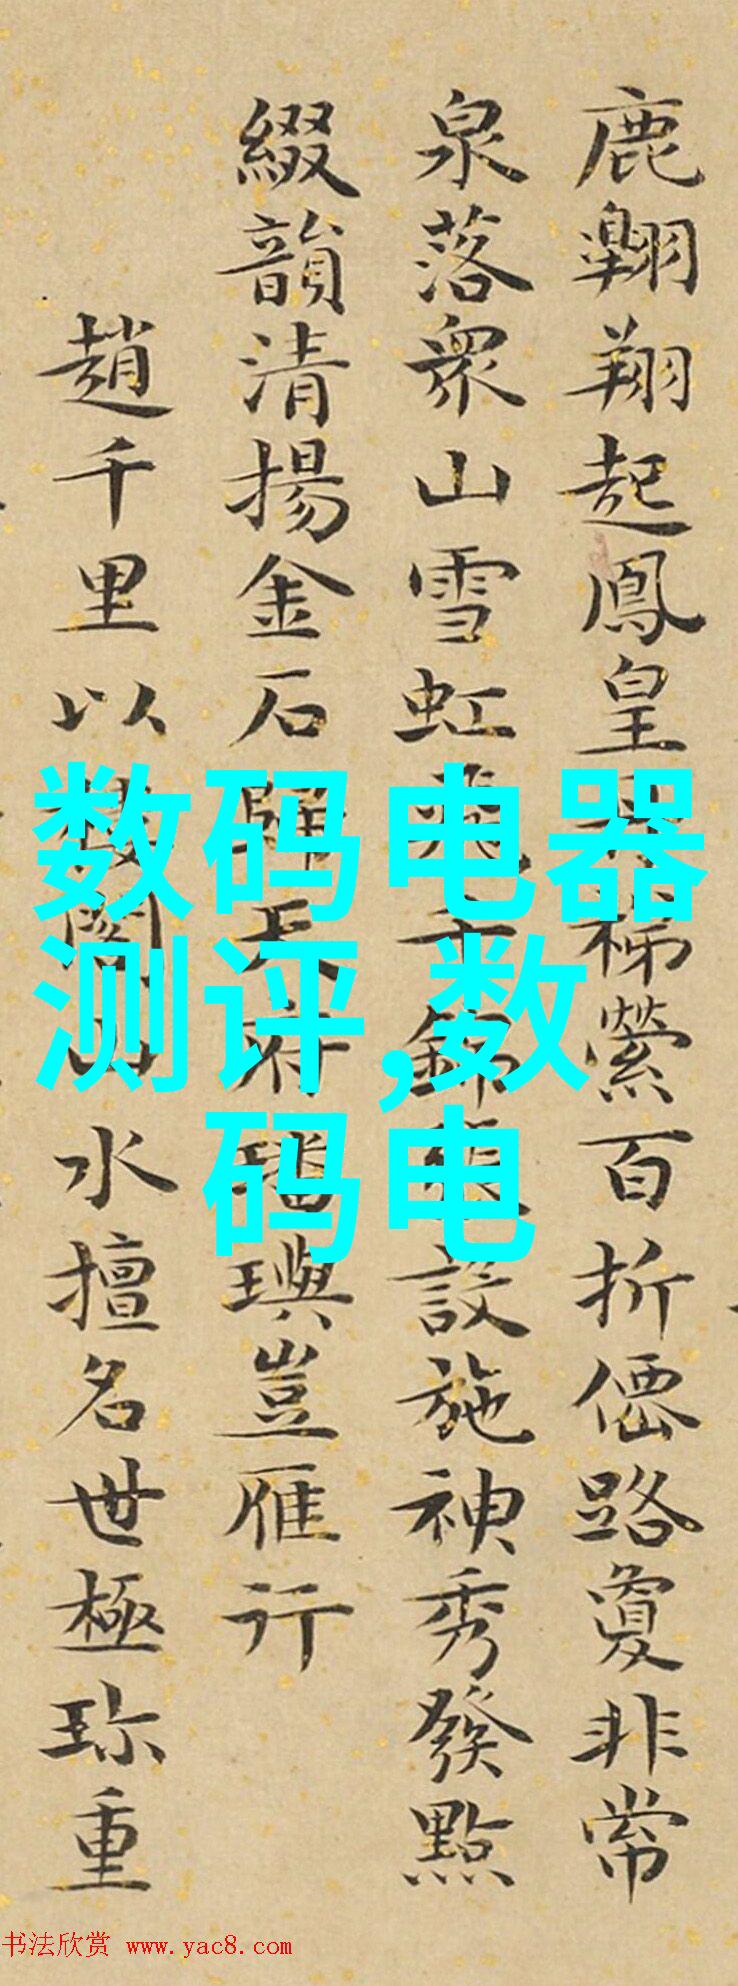 鹿翱翔起鳳皇丹梯縈百折僊路敻非常
泉落衆山雪虹飛千錦張設施神秀發點
綴韻清揚金石歸天府璠璵豈雁行
趙千里以樓閣山水擅名世極珎重
数码电器
测评,数
码电
书法欣赏 www.yac8.com